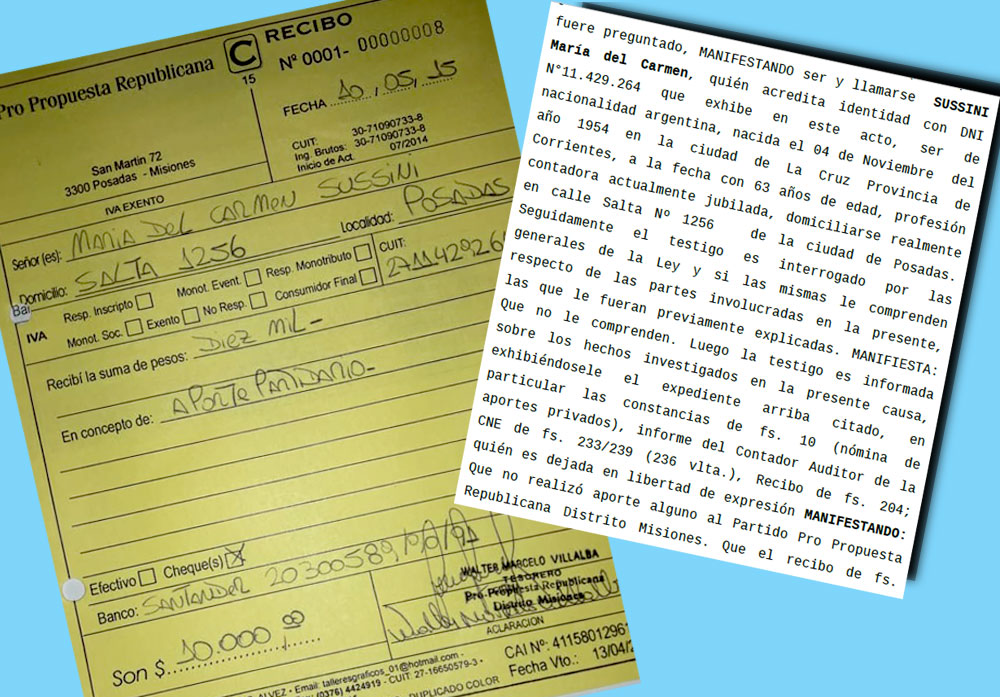 Pro Propuesta Republicana
C
15
RECIBO
Nº 0001- 00000008
FECHA 10, 05, 15
San Martin 72
3300 Posadas - Misiones
CUIT: 30-71090733-8
Ing. Brutos: 30-71090733-8
Inicio de Act. 07/2014
IVA EXENTO
Señor (es): MARIA DEL CARMEN SUSSINI
Domicilio: SALTA 1256 Localidad: POSADAS
IVA Resp. Inscripto Monot. Event. Resp. Monotributo CUIT:
Monot. Soc. Exento No Resp. Consumidor Final
Recibí la suma de pesos: DIEZ MIL-
En concepto de: APORTE PARTIDARIO-
Efectivo Cheque(s) X
Banco: SANTANDER 20300589
WALTER MARCELO VILLALBA
TESORERO
Pro Propuesta Republicana
Distrito Misiones
ACLARACION
Son $ 10.000,00
Email: talleresgraficos_01@hotmail.com -
(0376) 4424919 - CUIT: 27-16650579-3 •
CAI Nº: 41158012961
Fecha Vto.: 13/04/
DUPLICADO COLOR
fuere preguntado, MANIFESTANDO ser y llamarse SUSSINI
María del Carmen, quién acredita identidad con DNI
N°11.429.264 que exhibe en este acto, ser de
nacionalidad argentina, nacida el 04 de Noviembre del
año 1954 en la ciudad de La Cruz Provincia de
Corrientes, a la fecha con 63 años de edad, profesión
contadora actualmente jubilada, domiciliarse realmente
en calle Salta Nº 1256 de la ciudad de Posadas.
Seguidamente el testigo es interrogado por las
generales de la Ley y si las mismas le comprenden
respecto de las partes involucradas en la presente,
las que le fueran previamente explicadas. MANIFIESTA:
Que no le comprenden. Luego la testigo es informada
sobre los hechos investigados en la presente causa,
exhibiéndosele el expediente arriba citado, en
particular las constancias de fs. 10 (nómina de
aportes privados), informe del Contador Auditor de la
CNE de fs. 233/239 (236 vlta.), Recibo de fs. 204;
quién es dejada en libertad de expresión MANIFESTANDO:
Que no realizó aporte alguno al Partido Pro Propuesta
Republicana Distrito Misiones. Que el recibo de fs.